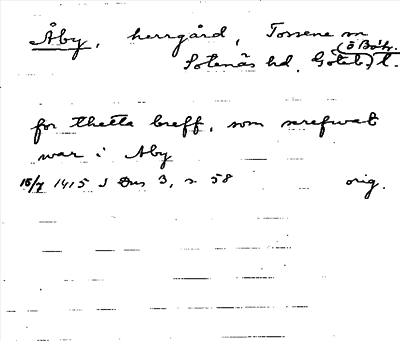 Åby, herrgård, Tossene sn
(ö Boh.
Sotenäs hd. Göteb.) l.
for thetta breff, som screfwat
war i Aby
15/7 1415 S Dns 3, s 58 orig.